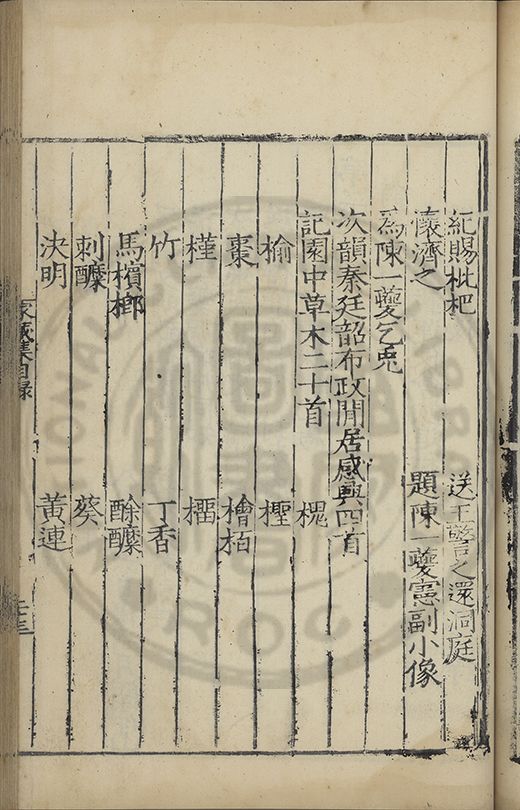 紀賜枇杷　送王警之還洞庭
懷濟之　題陳一夔憲副小像
為陳一夔乞兎
次韻秦廷韶布政閒居感興四首
記園中草木二十首　槐
榆　檉
棗　檜柏
槿　橊
竹　丁香
馬檳榔　酴醾
刺醾　葵
決明　黃連
家藏集目録